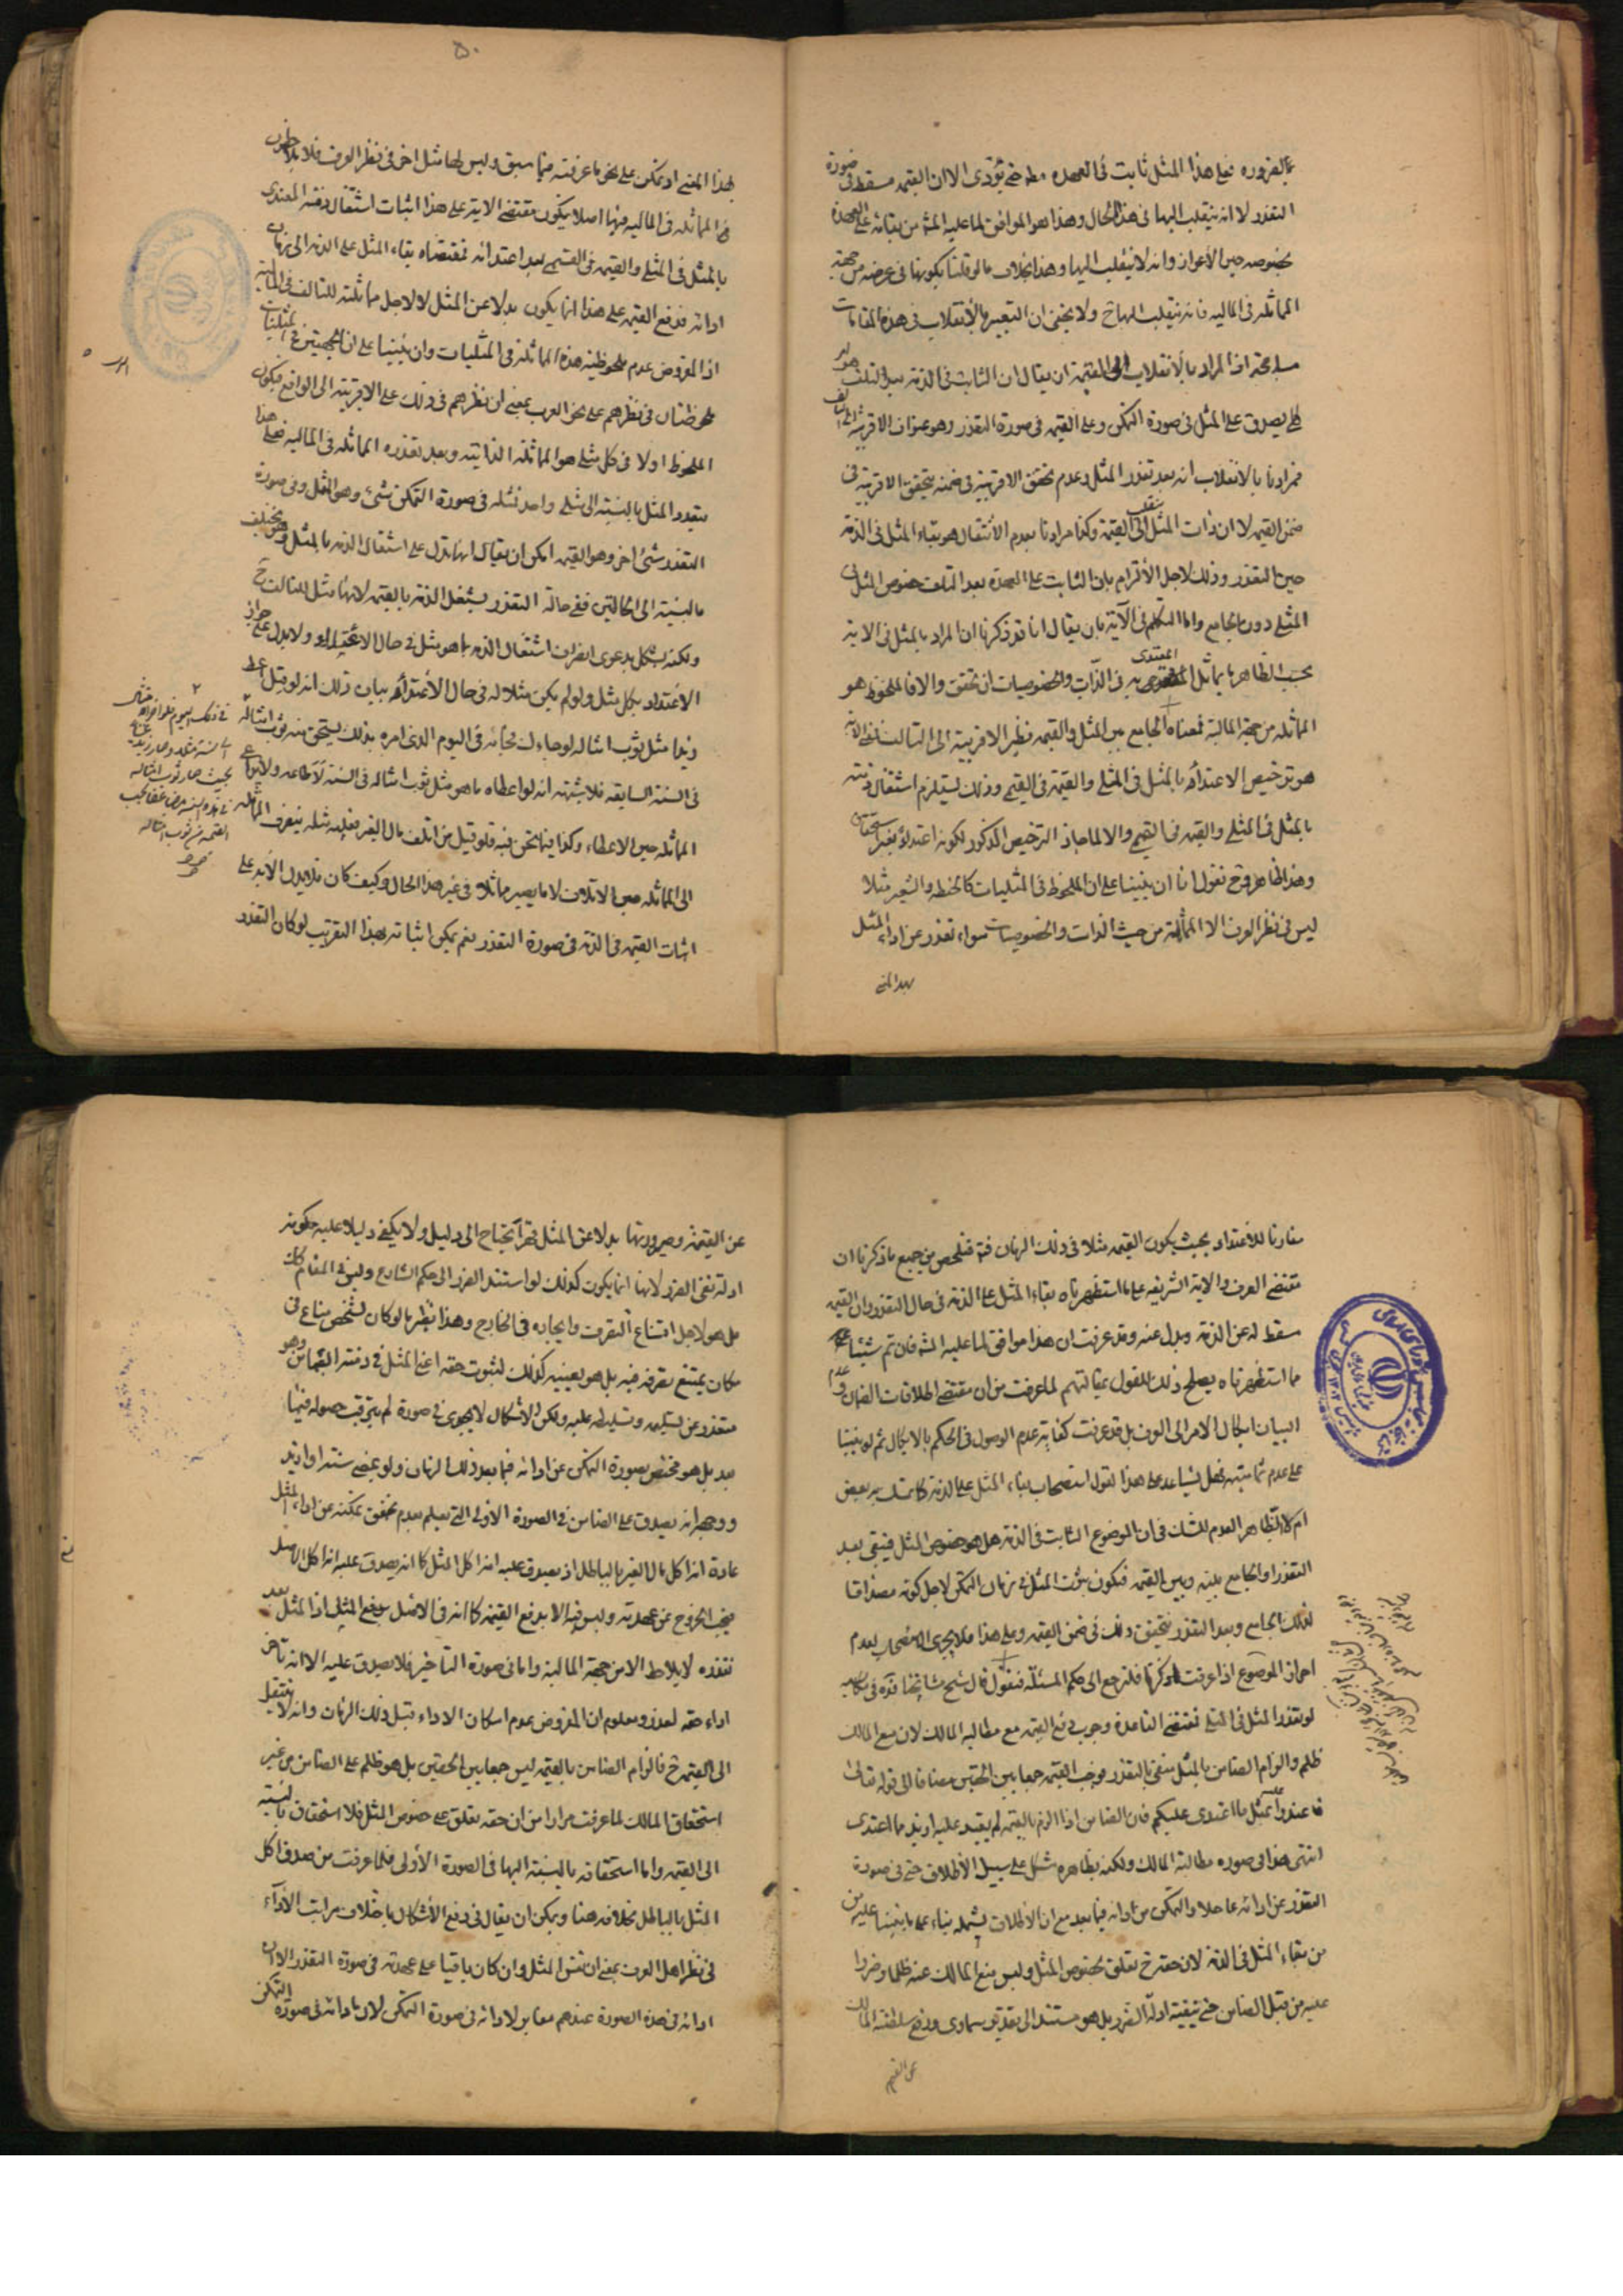 بالضرورة فعلى هذا المثل ثابت في العهدة مطلقا حتى يؤدى الا ان القيمة مسقطة في صورة
التعذر لا انه ينقلب اليها في هذا الحال وهذا هو الموافق لما عليه المش من بقائه على العهدة
بخصوصه حين الأعواز وانه لا ينقلب اليها وهذا بخلاف ما لو قلنا بكونها في عرضه من جهة
المماثلة في المالية فانه ينقلب اليها ح ولا يخفى ان التعبير بالأنقلاب في هذه المقامات
مسامحة اذ المراد بالأنقلاب الى القيمة ان يقال ان الثابت في الذمة بعد التلف هو
يصدق على المثل في صورة التمكن وعلى القيمة في صورة التعذر وهو عنوان الاقرب الى التالف
فمرادنا بالانقلاب انه بعد تعذر المثل وعدم تحقق الاقربية في ضمنه يتحقق الاقربية في
ضمن القيمة لا ان ذات المثل ينقلب الى القيمة وكذا مرادنا بعدم الأنتقال هو بقاء المثل في الذمة
حين التعذر وذلك لاجل الألتزام بان الثابت على العهدة بعد التلف خصوص المثل في
المثلي دون الجامع واما التكلم في الآية بان يقال انا قد ذكرنا ان المراد بالمثل في الاية
بحسب الظاهر ما يماثل المعتدى به في الذات والخصوصيات ان تحقق والا فالملحوظ هو
المماثلة من جهة المالية فمعناه الجامع بين المثل والقيمة نظير الاقربية الى التالف
هو ترخيص الاعتداء بالمثل في المثلي والقيمة في القيمي وذلك يستلزم اشتغال ذمته
بالمثل في المثلي والقيمة في القيمي والا لما جاز الترخيص المذكور لكونه اعتداء بغير استحقاق
وهذا ظاهر وح نقول انا ان بنينا على ان الملحوظ في المثليات كالحنطة والشعير مثلا
ليس في نظر العرف الا المماثلة من حيث الذات والخصوصيات سواء تعذر عن اداء المثل
بهذا المعنى
٥٠
بهذا المعنى او تمكن على نحو ما عرفته فيما سبق وليس لها مثل اخر في نظر العرف فلا يلاحظون
المماثلة في المالية فيها اصلا يكون مقتضى الاية على هذا اثبات اشتغال ذمة المعتدى
بالمثل في المثلي والقيمة في القيمي بعد اعتدائه فمقتضاه بقاء المثل على الذمة الى زمان
ادائه فدفع القيمة على هذا انما يكون بدلا عن المثل لا لاجل مماثلته للتالف في المالية
اذ المفروض عدم ملحوظية هذه المماثلة في المثليات وان بنينا على ان الجهتين في المثليات
ملحوظتان في نظرهم على نحو الترتب بمعنى ان نظرهم في ذلك على الاقربية الى الواقع فيكون
الملحوظ اولا في كل مثلي هو المماثلة الذاتية وبعد تعذره المماثلة في المالية فعلى هذا
يتعدد المثل بالنسبة الى مثلي واحد فمثله في صورة التمكن شيء وهو المثل وفي صورة
التعذر شيء اخر وهو القيمة امكن ان يقال انها تدل على اشتغال الذمة بالمثل ويختلف
بالنسبة الى الحالتين ففي حالة التعذر يشتغل الذمة بالقيمة لانها مثل للتالف ح
ولكنه يشكل بدعوى انصراف اشتغال الذمة بما هو مثل في حال الاعتداء ولا يدل على جواز
الأعتداء بكل مثل ولو لم يكن مثلا له في حال الأعتداء بيان ذلك انه لو قيل اعط
زيدا مثل ثوب امثاله لو جاءك لحاجة في اليوم الذي امره بذلك يستحق منه ثوب امثاله
في السنة السابقة فلا شبهة انه لو اعطاه ما هو مثل ثوب امثاله في السنة
المماثلة حين الاعطاء وكذا فيما نحن فيه فلو قيل من اتلف مال الغير فعليه مثله ينصرف المماثلة
الى المماثلة حين الاتلاف لا ما يصير مماثلا في غير هذا الحال وكيف كان فلا يدل الأية على
اثبات القيمة في الذمة في صورة التعذر نعم يمكن اثباته بهذا التقريب لو كان التعذر
مقارنا للاعتداء بحيث يكون القيمة مثلا في ذلك الزمان فتلخص من جميع ما ذكرنا ان
مقتضى العرف والاية الشريفة على ما استظهرناه بقاء المثل على الذمة في حال التعذر وان القيمة
مسقط له عن الذمة وبدل عنه وقد عرفت ان هذا موافق لما عليه المش فان تم شيئا
مما استظهرناه يصلح ذلك للقول بمقالتهم لما عرفت من ان مقتضى اطلاقات الضمان وعدم
البيان ايكال الامر الى العرف بل قد عرفت كفاية عدم الوصول في الحكم بالايكال ثم لو بنينا
على عدم تماميته فهل يساعد على هذا القول استصحاب بقاء المثل على الذمة كما تمسك به بعض
ام لا الظاهر العدم للشك في ان الموضوع الثابت في الذمة هل هو خصوص المثل فيبقى بعد
التعذر او الجامع بينه وبين القيمة فيكون ثبوت المثل في زمان التمكن لاجل كونه مصداقا
لذلك الجامع وبعد التعذر يتحقق ذلك في ضمن القيمة وعلى هذا فلا يجرى الاستصحاب لعدم
احراز الموضوع اذا عرفت ما ذكرنا فلنرجع الى حكم المسئلة فنقول قال شيخ مشايخنا قده في مكاسبه
لو تعذر المثل في المثلي فمقتضى القاعدة وجوب دفع القيمة مع مطالبة المالك لان منع المالك
ظلم والزام الضامن بالمثل منفي بالتعذر فوجب القيمة جمعا بين الحقين مضافا الى قوله تعالى
فاعتدوا عليه بمثل ما اعتدى عليكم فان الضامن اذا الزم بالقيمة لم يعتد عليه ازيد مما اعتدى
انتهى هذا في صورة مطالبة المالك ولكنه بظاهره مشكل على سبيل الأطلاق حتى في صورة
التعذر عن ادائه عاجلا والتمكن من ادائه فيما بعد مع ان الأطلاق يشمله بناء على ما بنينا عليه من
من بقاء المثل في الذمة لان حقه ح تعلق بخصوص المثل وليس منع المالك عنه ظلما وضررا
عليه من قبل الضامن حتى ينفيه ادلة الضرر بل هو مستند الى تقدير سماوى ودفع سلطنة المالك
عن القيمة
عن القيمة وصيرورتها بدلا عن المثل قهرا يحتاج الى دليل ولا يكفي دليلا عليه حكومة
ادلة نفي الضرر لانها انما يكون كذلك لو استند الضرر الى حكم الشارع وليس في المقام كذلك
بل هو لاجل امتناع التصرف وايجاده في الخارج وهذا نظير ما لو كان لشخص متاع في
مكان يمتنع تصرفه فيه بل هو بعينيه كذلك لثبوت حقه اعني المثل في ذمته الضامن وهو
متعذر عن تسليمه وتسليطه عليه ولكن الاشكال لا يجرى في صورة لم يترقب حصوله فيما
بعد بل هو مختص بصورة التمكن عن ادائه فيما بعد ذلك الزمان ولو بمضي سنة او ازيد
ووجهه انه يصدق على الضامن في الصورة الاولى التي يعلم بعدم تحقق تمكنه عن اداء المثل
عادة انه اكل مال الغير بالباطل اذ يصدق عليه انه اكل المثل كما انه يصدق عليه انه اكل الاصل
فيجب الخروج عن عهدته وليس فيه الا بدفع القيمة كما انه في الاصل بدفع المثل اذ المثل بعد
تعذره لا يلاحظ الا من جهة المالية واما في صورة التأخير فلا يصدق عليه الا انه تأخر
اداء حقه لعذر ومعلوم ان المفروض عدم امكان الاداء قبل ذلك الزمان وانه لا ينتقل
الى القيمة ح فالزام الضامن بالقيمة ليس جمعا بين الحقين بل هو ظلم على الضامن من غير
استحقاق المالك لما عرفت مرارا من ان حقه تعلق على خصوص المثل فلا استحقاق بالنسبة
الى القيمة واما استحقاقه بالنسبة اليها في الصورة الأولى فلما عرفت من صدق اكل
المثل بالباطل بخلافه هنا ويمكن ان يقال في دفع الأشكال باختلاف مراتب الأداء
في نظر اهل العرف بمعنى ان نفس المثل وان كان باقيا على عهدته في صورة التعذر الا ان
ادائه في هذه الصورة عندهم مغاير لادائه في صورة التمكن لان ادائه في صورة التمكن